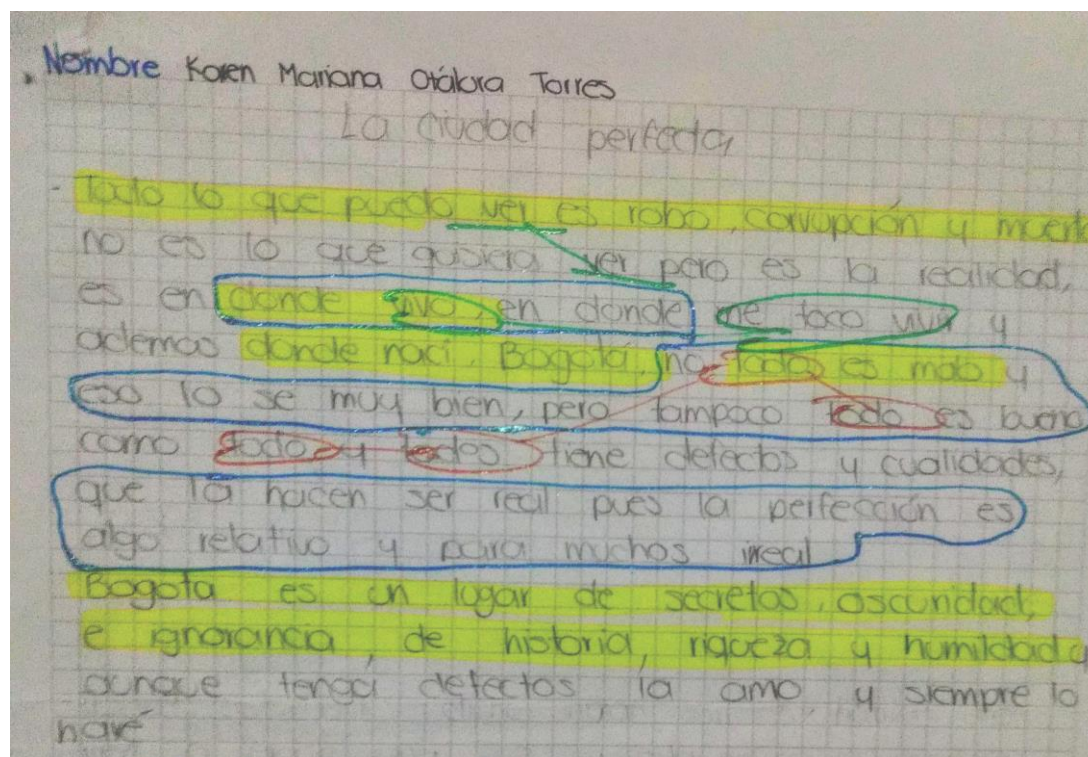 Nombre Karen Mariana Otálora Torres
La ciudad perfecta
- Todo lo que puedo ver es robo, corrupción y muerte
no es lo que quisiera ver pero es la realidad,
es en donde vivo, en donde me toco vivir y
ademas donde naci, Bogotá, no todo es malo y
eso lo se muy bien, pero tampoco todo es bueno
como todo y todos tiene defectos y cualidades,
que la hacen ser real pues la perfección es
algo relativo y para muchos irreal
Bogota es un lugar de secretos, oscuridad,
e ignorancia, de historia, riqueza y humildad y
aunque tenga defectos, la amo, y siempre lo
haré